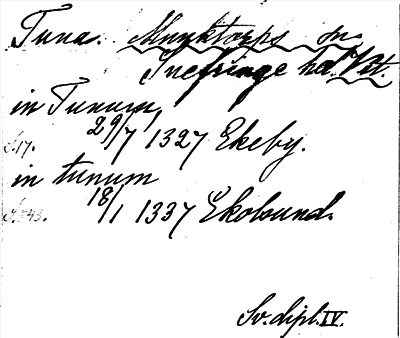 Tuna. Munktorps sn.
Snefringe hd. Vstm.
in Tunum,
29/7 1327 Ekeby.
S. 17.
in tunum
18/1 1337 Ekolsund.
Sv. dipl. IV.